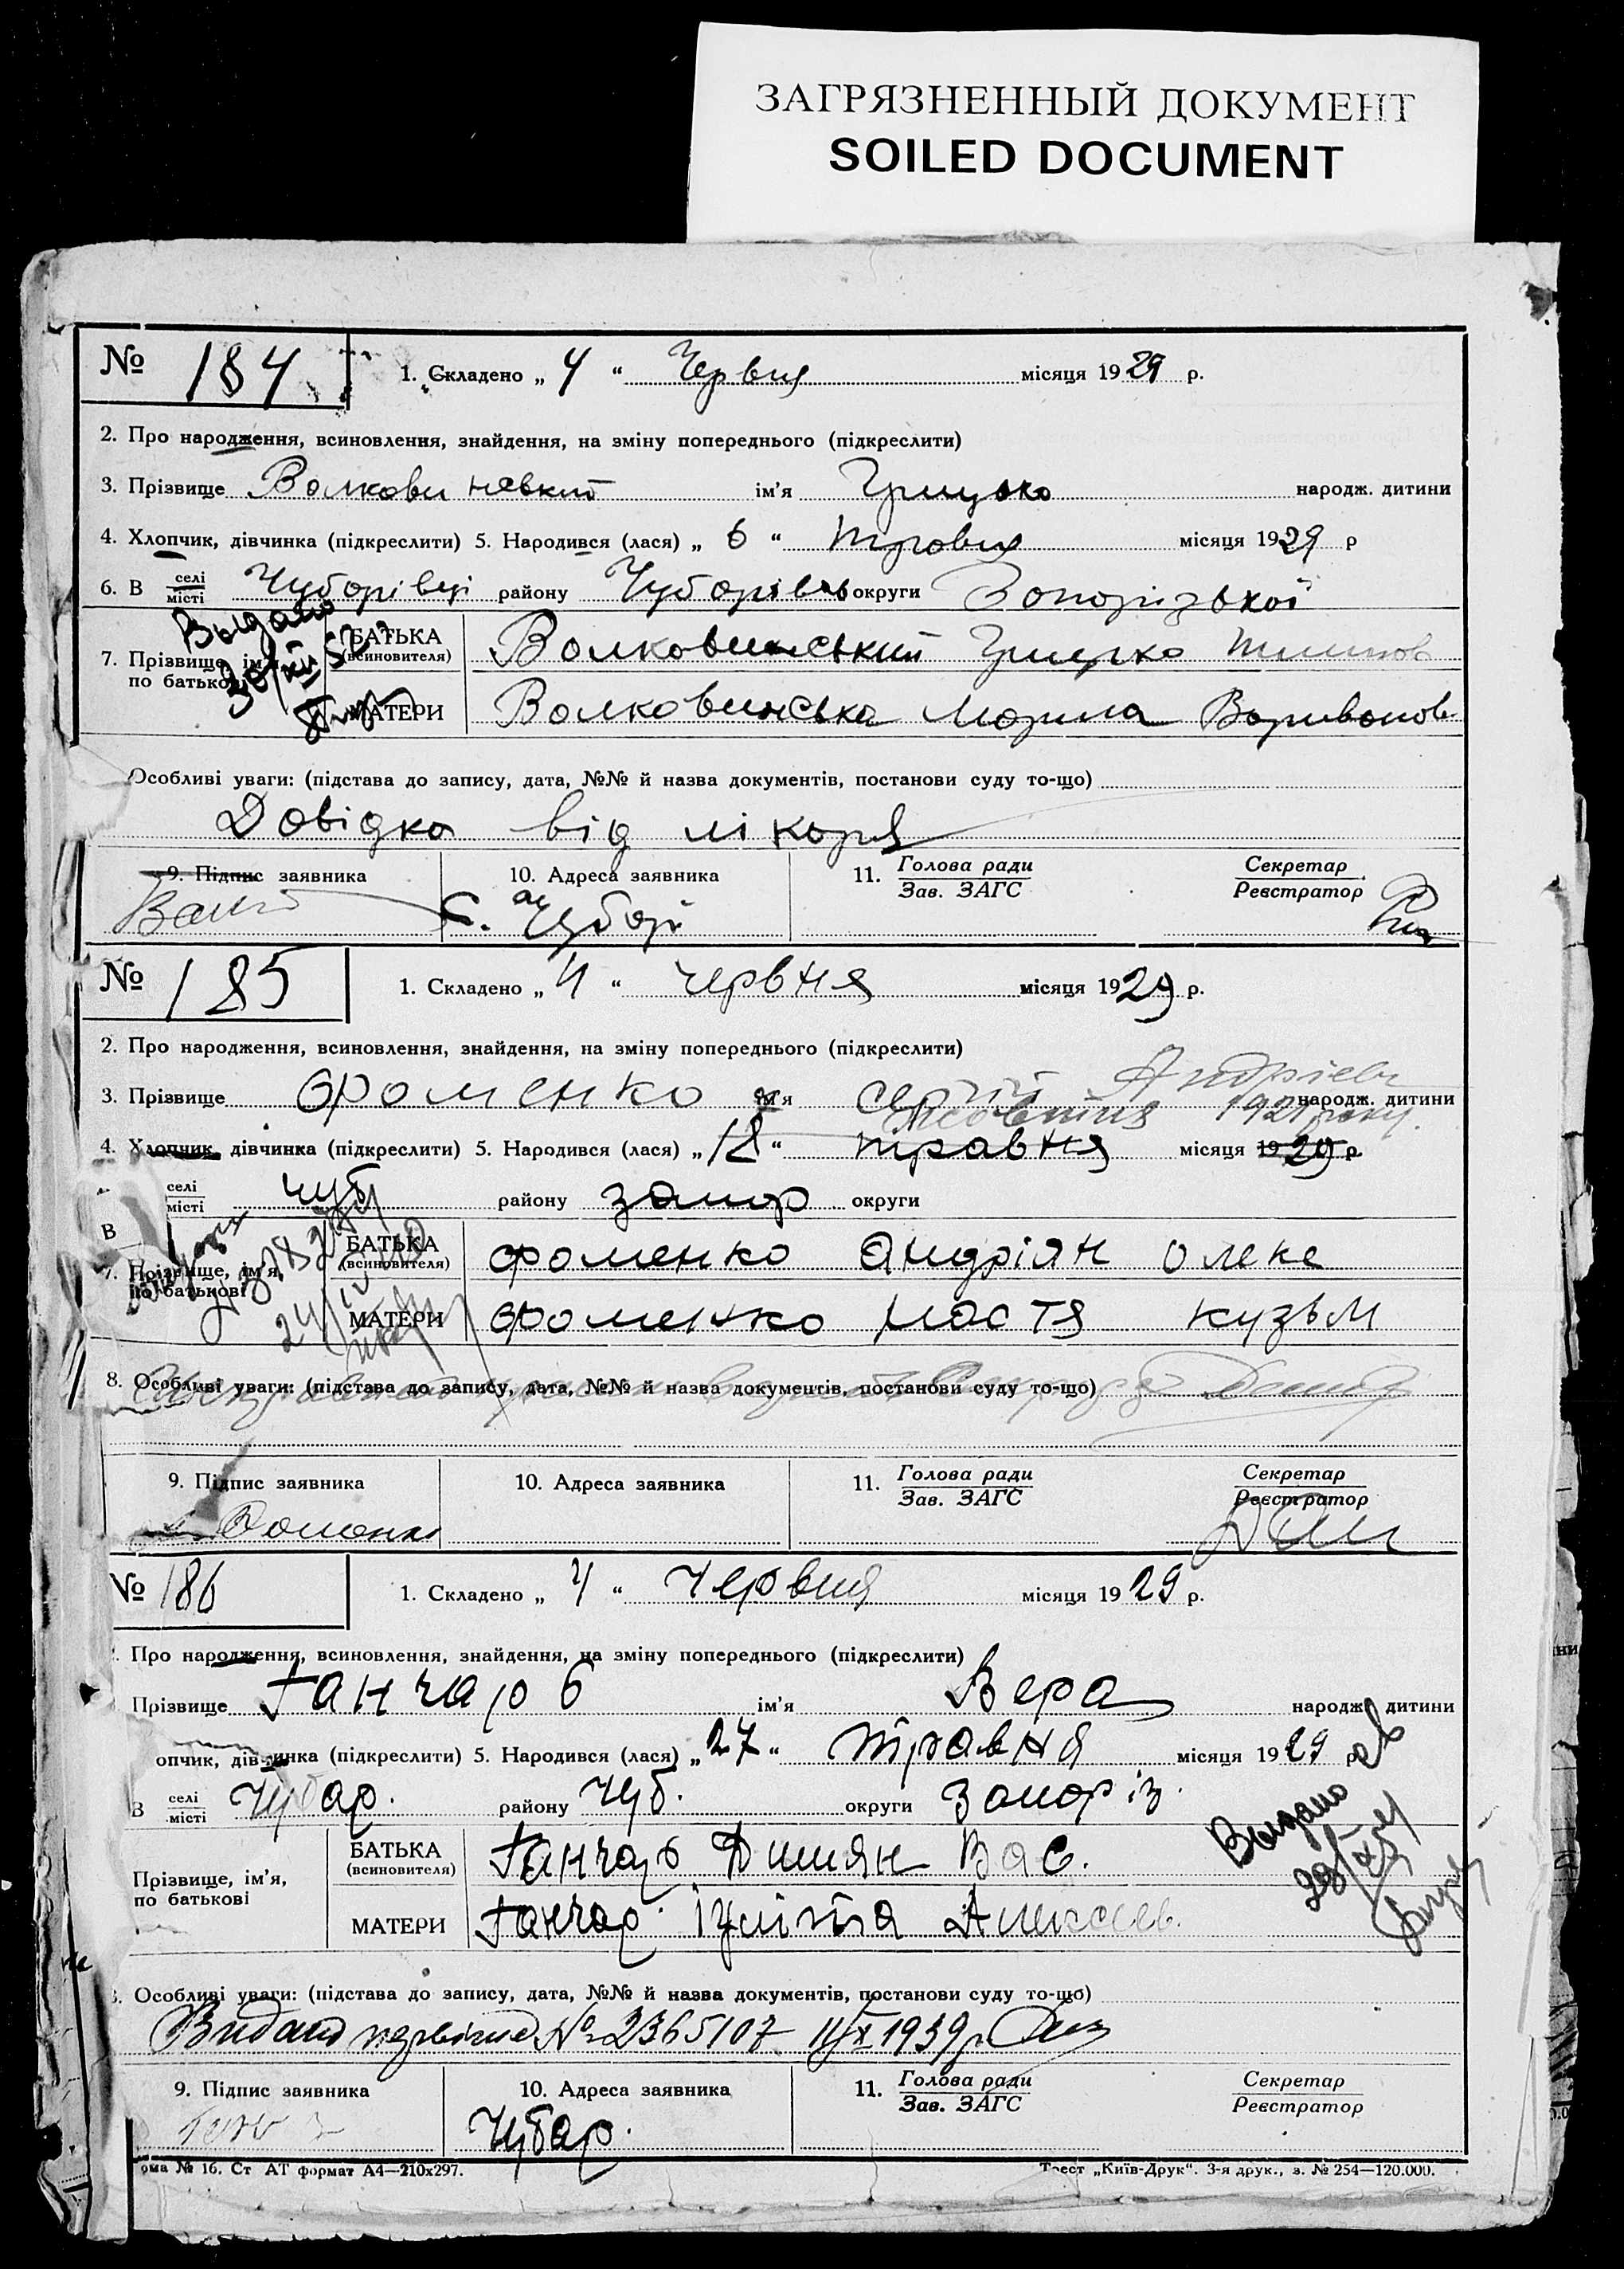 ЗАГРЯЗНЕННЫЙ ДОКУМЕНТ
SOILED DOCUMENT
№ 184
1. Складено „ 4 “ Червня місяця 1929 р.
2. Про народження, всиновлення, знайдення, на зміну попереднього (підкреслити)
3. Прізвище Волковинський ім'я Грицько народж. дитини
4. Хлопчик, дівчинка (підкреслити) 5. Народився (лася) „ 6 “ травня місяця 1929 р
6. В селі місті Чубарівці району Чубарівсь округи Запорізької
Выдано
7. Прізвище, ім'я по батькові
БАТЬКА (всиновителя) Волковинський Грицько
МАТЕРИ Волковинська Марина Вариванов
Особливі уваги: (підстава до запису, дата, №№ й назва документів, постанови суду то-що)
Довідка від лікаря
9. Підпис заявника 10. Адреса заявника 11. Голова ради Зав. ЗАГС Секретар Реєстратор
с. Чубар
№ 185
1. Складено „ 4 “ червня місяця 1929 р.
2. Про народження, всиновлення, знайдення, на зміну попереднього (підкреслити)
3. Прізвище Фоменко ім'я Сергій Андрієв народж. дитини
жовтня 1921 року.
4. Хлопчик, дівчинка (підкреслити) 5. Народився (лася) „ 18 “ травня місяця 1929 р
В селі місті Чуб району запор округи
7. Прізвище, ім'я по батькові
БАТЬКА (всиновителя) Фоменко Андріян Олекс
МАТЕРИ Фоменко Настя Кузьм
8. Особливі уваги: (підстава до запису, дата, №№ й назва документів, постанови суду то-що)
9. Підпис заявника 10. Адреса заявника 11. Голова ради Зав. ЗАГС Секретар Реєстратор
Фоменко
№ 186
1. Складено „ 4 “ Червня місяця 1929 р.
Про народження, всиновлення, знайдення, на зміну попереднього (підкреслити)
Прізвище Ганчарь ім'я Вера народж. дитини
опчик, дівчинка (підкреслити) 5. Народився (лася) „ 27 “ травня місяця 1929 р
В селі місті Чубар. району Чуб. округи Запоріз.
Выдано
Прізвище, ім'я, по батькові
БАТЬКА (всиновителя) Ганчарь Димян Вас.
МАТЕРИ Ганчар Алексеев.
Особливі уваги: (підстава до запису, дата, №№ й назва документів, постанови суду то-що)
Видано первісне № 2365107 11/X 1939 р
9. Підпис заявника 10. Адреса заявника 11. Голова ради Зав. ЗАГС Секретар Реєстратор
Чубар.
рма № 16. Ст АТ формат А4—210х297. Трест „Київ-Друк“. 3-я друк., з. № 254—120.000.